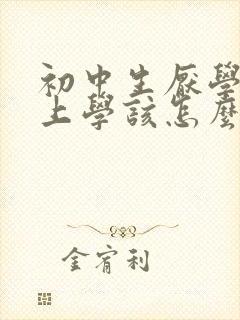 初中生厭學
上學該怎麼
金宥利